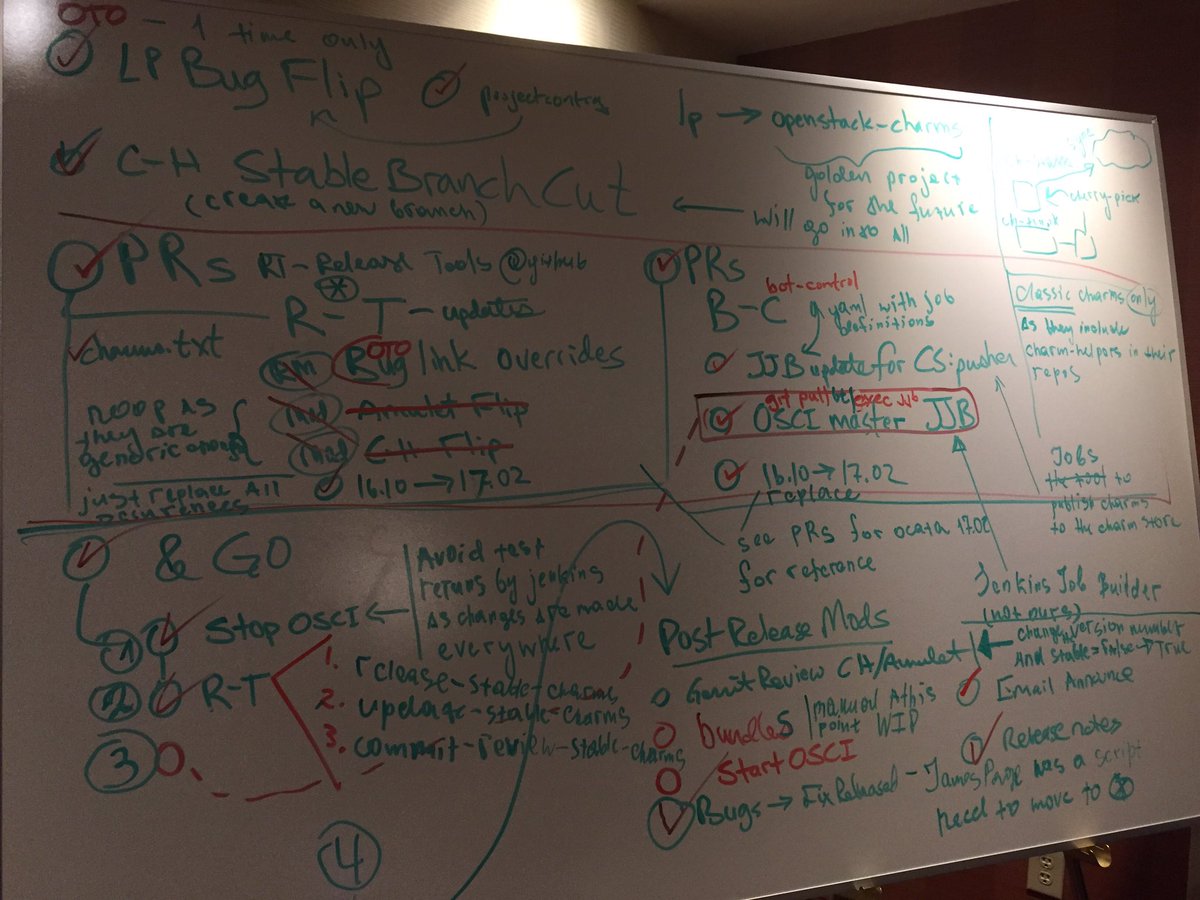 OTO - 1 time only
LP Bug Flip
lp → openstack-charms
golden project
for the future
will
go into all
C-H Stable Branch Cut
(create a new branch)
cherry-pick
Classic charms only
As they include
charm-helpers in their
repos
PRs RT-Release Tools @github
R-T-updates
charms.txt
Bug OTO link overrides
Amulet Flip
C-H Flip
noop as
they are
generic enough
16.10 → 17.02
just replace All
occurrences
PRs
bot-control
B-C yaml with job
definitions
JJB update for CS:pusher
git pull exec jjb
OSCI master JJB
16.10 → 17.02
replace
see PRs for ocata 17.02
for reference
Jobs
the tool to
publish charms
to the charm store
Jenkins Job Builder
(not ours)
& GO
1 Stop OSCI
Avoid test
reruns by jenkins
as changes are made
everywhere
2 R-T
1. release-stable-charms
2. update-stable-charms
3. commit-review-stable-charms
3
4
Post Release Mods
Gerrit Review CH/Amulet
change version number
and stable=false → True
bundles
manual at this
point WIP
Email Announce
Start OSCI
Release notes
Bugs → Fix Released - James Page has a script
need to move to *